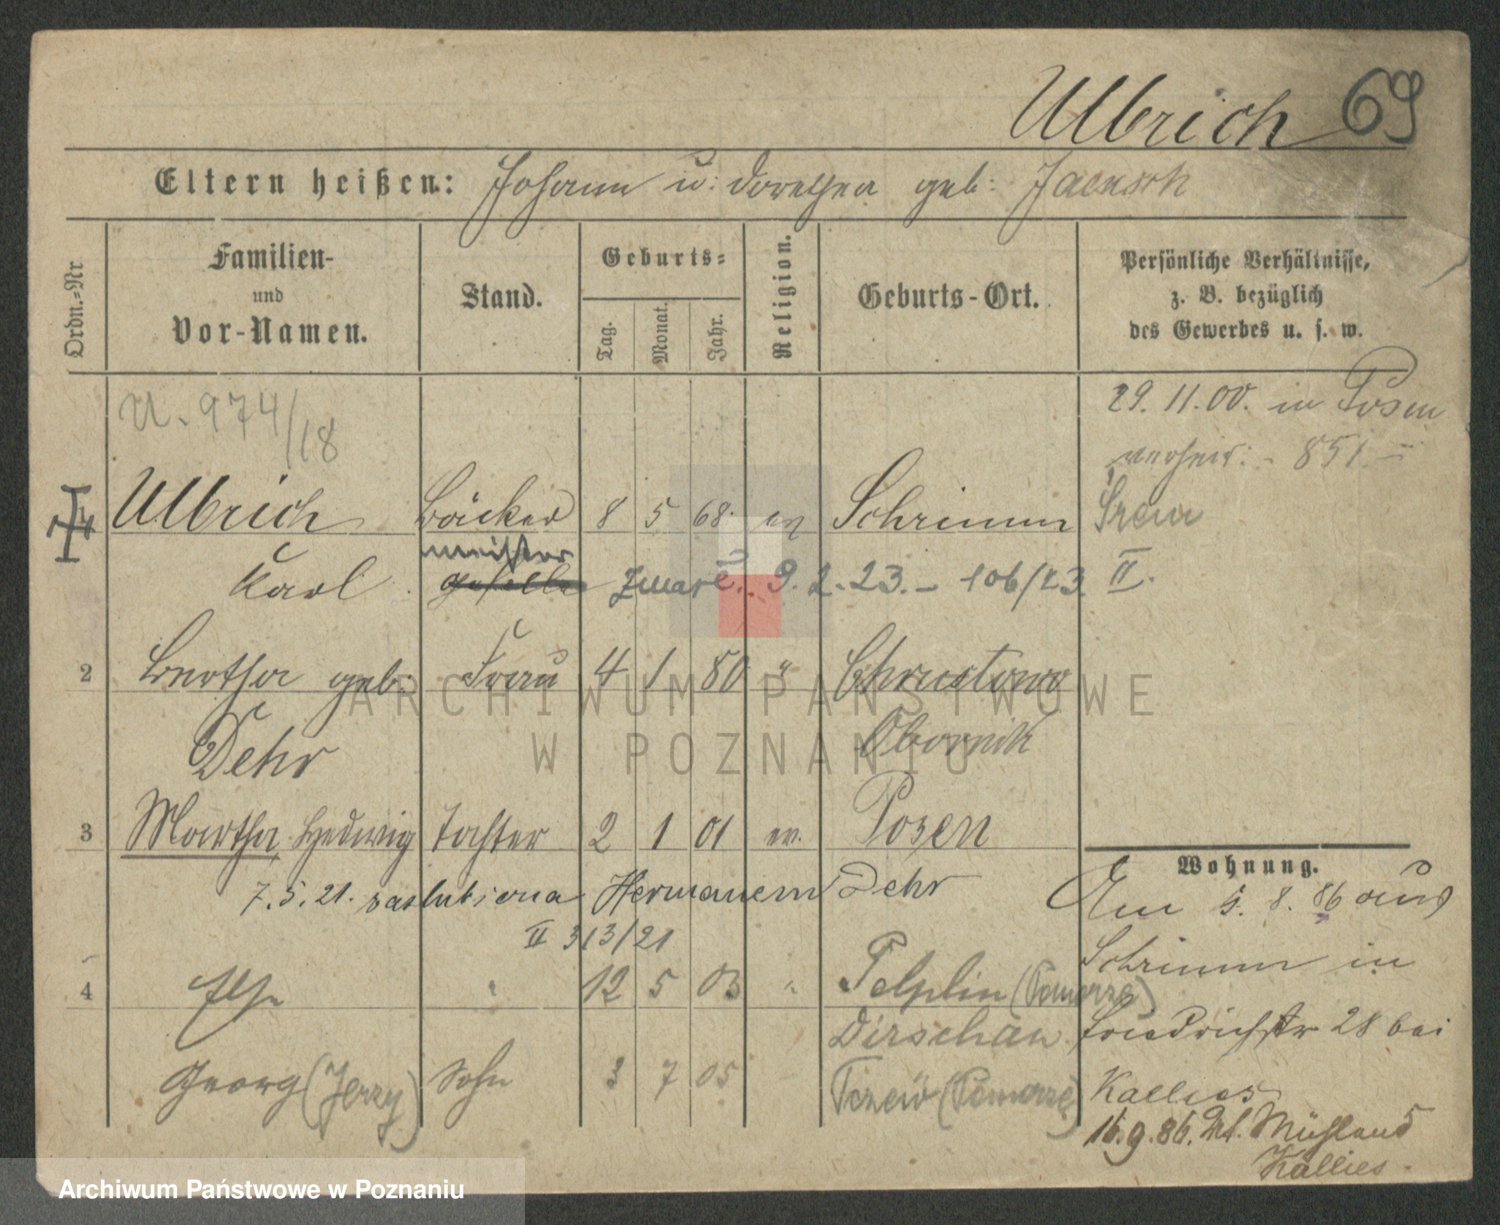 Ulbrich 69
Eltern heißen: Johann u. Dorothea geb: Jaensch
Ordn.=Nr
Familien-
und
Vor-Namen.
Stand.
Geburts=
Tag.
Monat.
Jahr.
Religion.
Geburts-Ort.
Persönliche Verhältnisse,
z. B. bezüglich
des Gewerbes u. s. w.
29. 11. 00. in Posen
U. 974/18
verheir: - 851. -
Ulbrich Bäcker 8 5 68 ev Schrimm Śrem
meister
Karl geselle zmarł. 9. 2. 23. - 106/23 II.
2 Bertha geb: Frau 4 1 80 " Chrustowo
Dehr Obornik
3 Martha Hedwig Tochter 2 1 01 ev. Posen
Wohnung.
7. 5. 21. zaślubiona Hermanem Dehr
Am 5. 8. 86 aus
II 313/21
Schrimm in
4 Else " 12 5 03 " Pelplin (Pomorze)
Dirschau Friedrichstr 28 bei
Georg (Jerzy) Sohn 3 7 05 Tczew (Pomorze) Kallies
16. 9. 86. Mühlend 5
Kallies.
ARCHIWUM PAŃSTWOWE
W POZNANIU
Archiwum Państwowe w Poznaniu